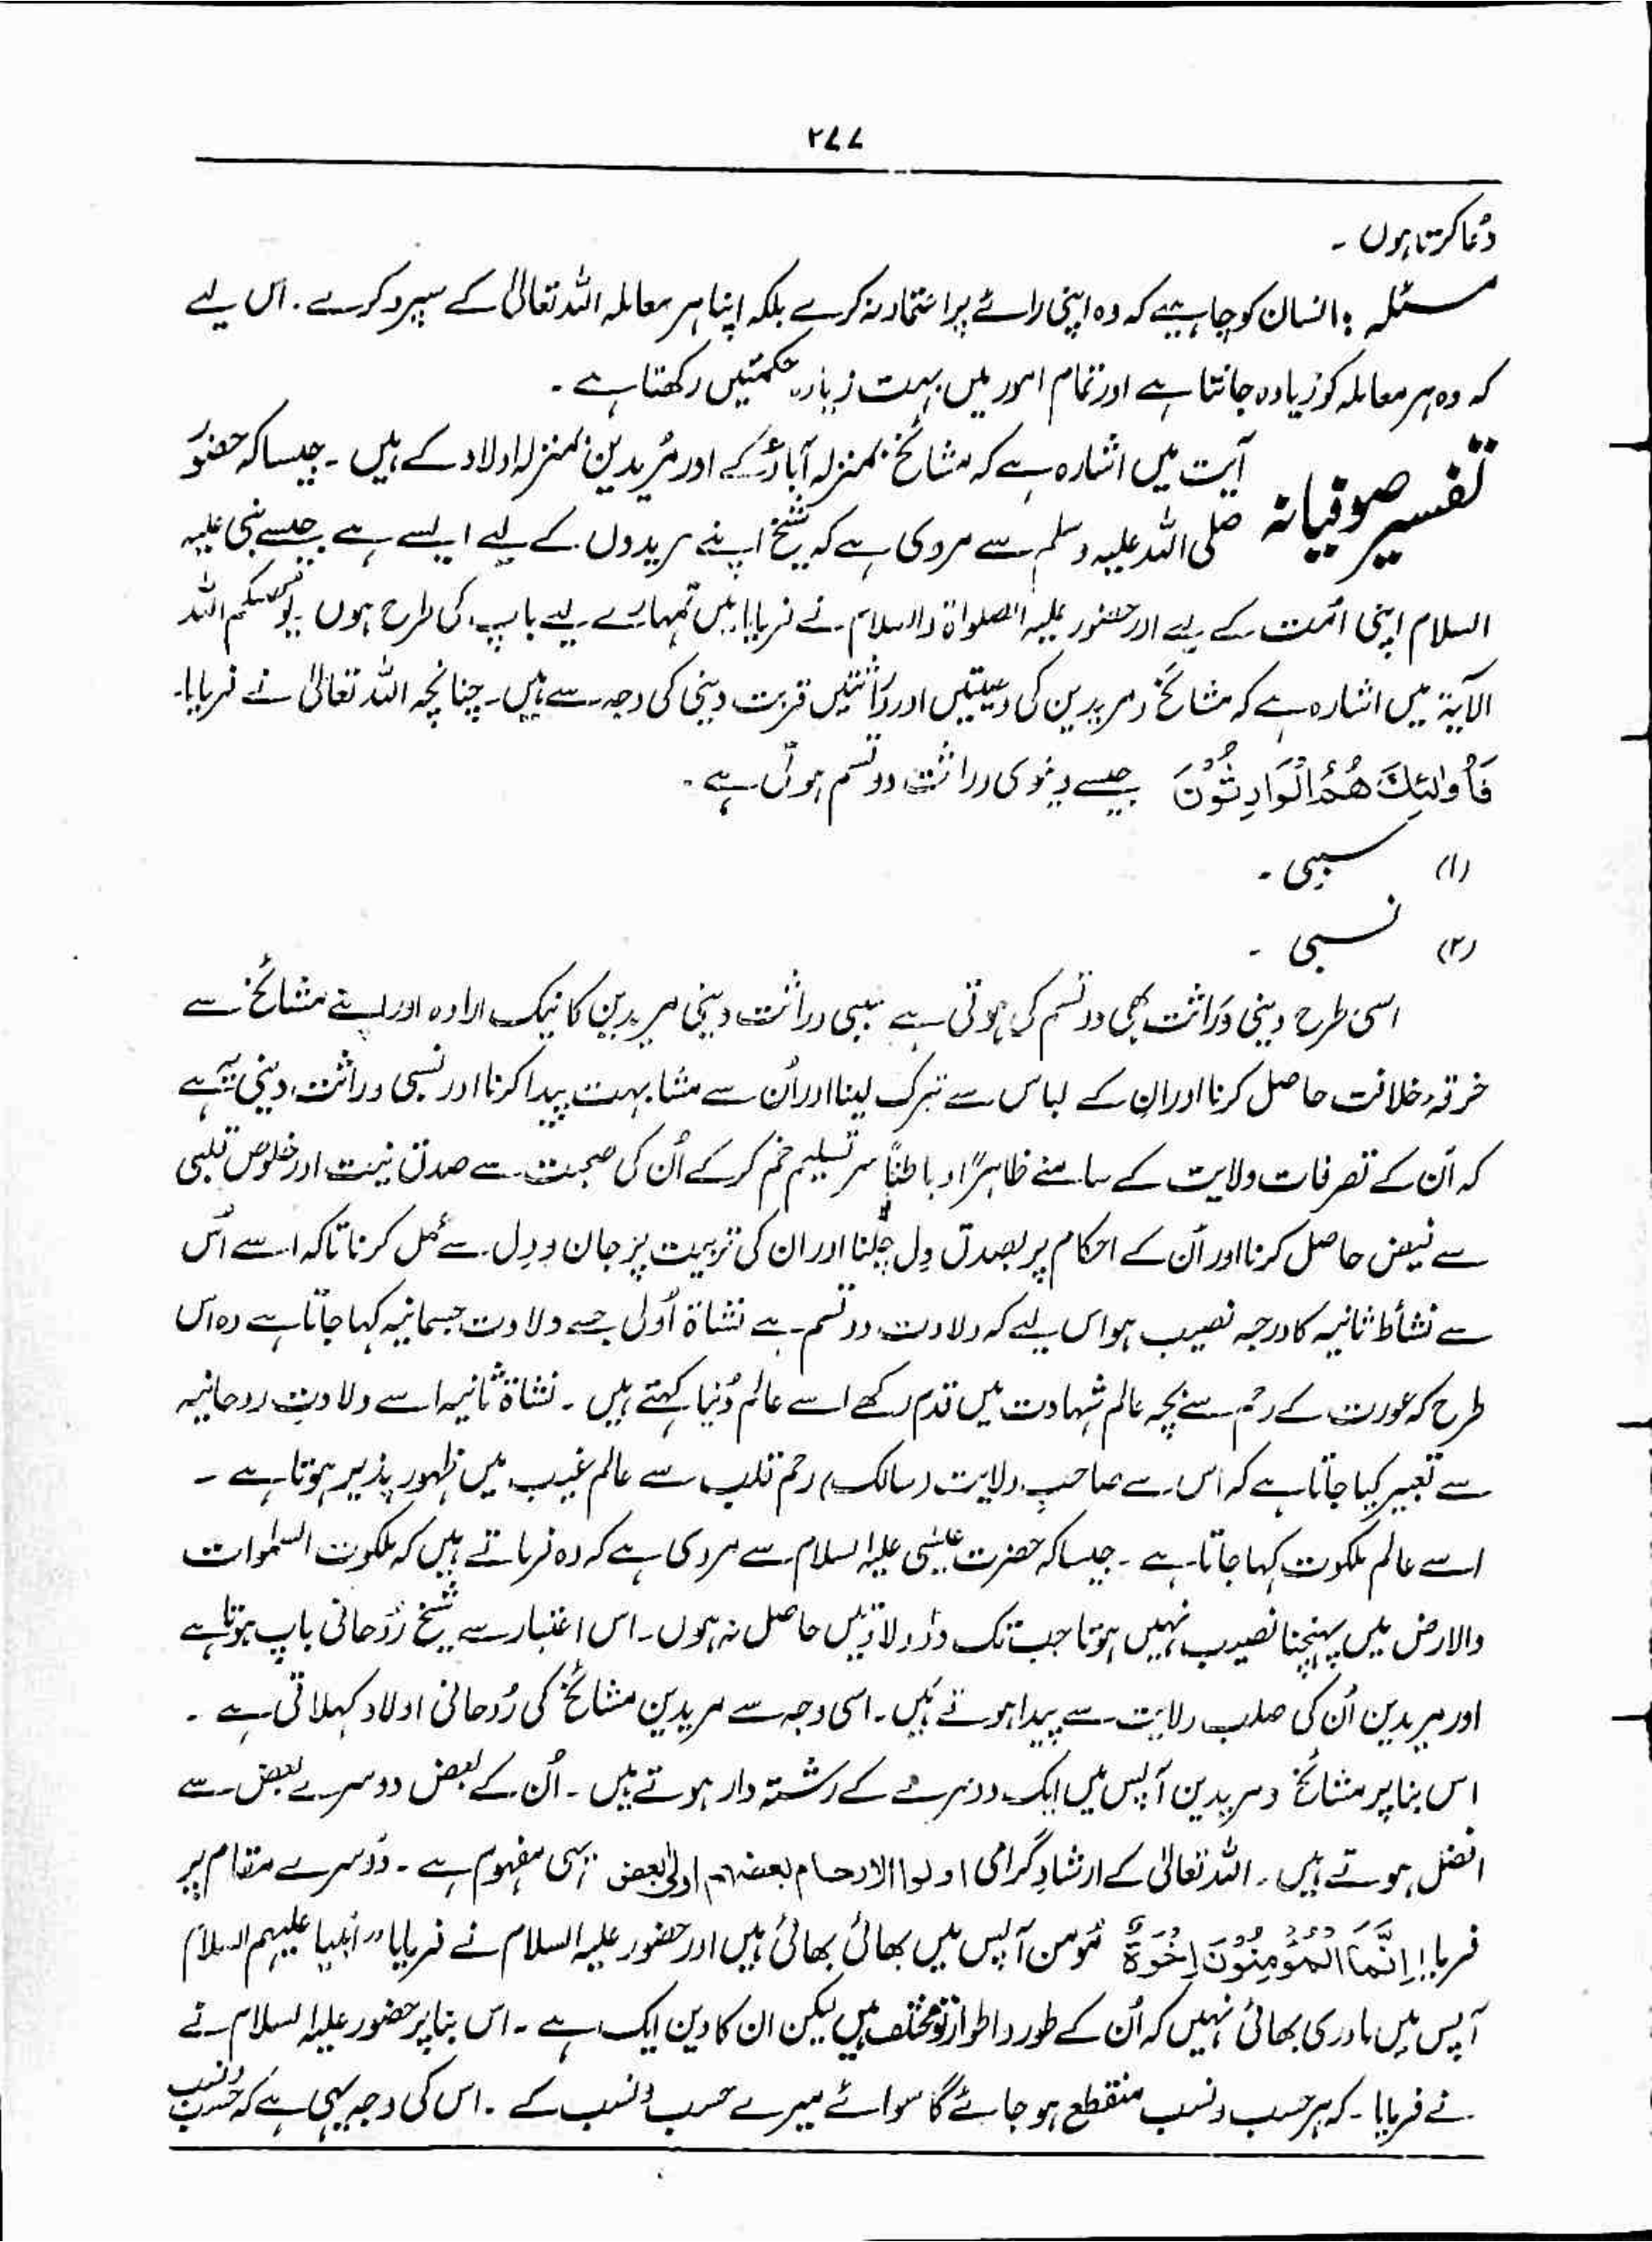 ۲۷۷
دُعا کرتا ہوں ۔
مسئلہ : انسان کو چاہیے کہ وہ اپنی رائے پر اعتماد نہ کرے بلکہ اپنا ہر معاملہ اللہ تعالیٰ کے سپرد کرے ۔ اس لیے
کہ وہ ہر معاملہ کو زیادہ جانتا ہے اور تمام امور میں بہت زیادہ حکمتیں رکھتا ہے ۔
تفسیر صوفیانہ آیت میں اشارہ ہے کہ مشائخ بمنزلہ آباء کے اور مُریدین بمنزلہ اولاد کے ہیں ۔ جیسا کہ حضور
صلی اللہ علیہ وسلم سے مروی ہے کہ شیخ اپنے مریدوں کے لیے ایسے ہے جیسے نبی علیہ
السلام اپنی اُمت کے لیے اور حضور علیہ الصلواۃ والسلام نے فرمایا میں تمہارے لیے باپ کی طرح ہوں ۔ یوصیکم اللہ
الآیۃ میں اشارہ ہے کہ مشائخ و مریدین کی وصیتیں اور وراثتیں قربت دینی کی وجہ سے ہیں ۔ چنانچہ اللہ تعالیٰ نے فرمایا ۔
فَأُولٰئِكَ هُمُ الْوَارِثُوْنَ جیسے دنیوی وراثت دو قسم ہوتی ہے ۔
(۱) سببی ۔
(۲) نسبی ۔
اسی طرح دینی وَراثت بھی دو قسم کی ہوتی ہے سببی وراثت دینی مریدین کا نیک ارادہ اور اپنے مشائخ سے
خرقہ خلافت حاصل کرنا اور ان کے لباس سے تبرک لینا اور اُن سے مشابہت پیدا کرنا اور نسبی وراثت دینی یہ ہے
کہ اُن کے تصرفات ولایت کے سامنے ظاہراً و باطناً سر تسلیم خم کر کے اُن کی صحبت سے صدق نیت اور خلوص قلبی
سے فیض حاصل کرنا اور اُن کے احکام پر بصدق دِل چلنا اور ان کی تربیت پر جان و دِل سے عمل کرنا تاکہ اسے اُس
سے نشأط ثانیہ کا درجہ نصیب ہو اس لیے کہ ولادت دو قسم ہے نشاۃ اُولی جسے ولادت جسمانیہ کہا جاتا ہے وہ اس
طرح کہ عورت کے رحم سے بچہ عالم شہادت میں قدم رکھے اسے عالم دُنیا کہتے ہیں ۔ نشاۃ ثانیہ اسے ولادت روحانیہ
سے تعبیر کیا جاتا ہے کہ اس سے صاحبِ ولایت (سالک) رحم قلب سے عالم غیب میں ظہور پذیر ہوتا ہے ۔
اسے عالم ملکوت کہا جاتا ہے ۔ جیسا کہ حضرت عیسٰی علیہ السلام سے مروی ہے کہ وہ فرماتے ہیں کہ ملکوت السمٰوات
والارض میں پہنچنا نصیب نہیں ہوتا جب تک دو ولادتیں حاصل نہ ہوں ۔ اس اعتبار سے شیخ رُوحانی باپ ہوتا ہے
اور مریدین اُن کی صلب ولایت سے پیدا ہوتے ہیں ۔ اسی وجہ سے مریدین مشائخ کی رُوحانی اولاد کہلاتی ہے ۔
اس بنا پر مشائخ و مریدین آپس میں ایک دوسرے کے رشتہ دار ہوتے ہیں ۔ اُن کے بعض دوسرے بعض سے
افضل ہوتے ہیں ۔ اللہ تعالیٰ کے ارشادِ گرامی اولوا الارحام بعضھم اولیٰ بعض یہی مفہوم ہے ۔ دُوسرے مقام پر
فرمایا إِنَّمَا الْمُؤْمِنُوْنَ اِخْوَةٌ مُومن آپس میں بھائی بھائی ہیں اور حضور علیہ السلام نے فرمایا "انبیا علیہم السلام
آپس میں مادری بھائی نہیں کہ اُن کے طور و اطوار تو مختلف ہیں لیکن ان کا دین ایک ہے ۔ اس بنا پر حضور علیہ السلام نے
نے فرمایا ۔ کہ ہر حسب و نسب منقطع ہو جائے گا سوائے میرے حسب و نسب کے ۔ اس کی وجہ یہی ہے کہ حسب و نسب